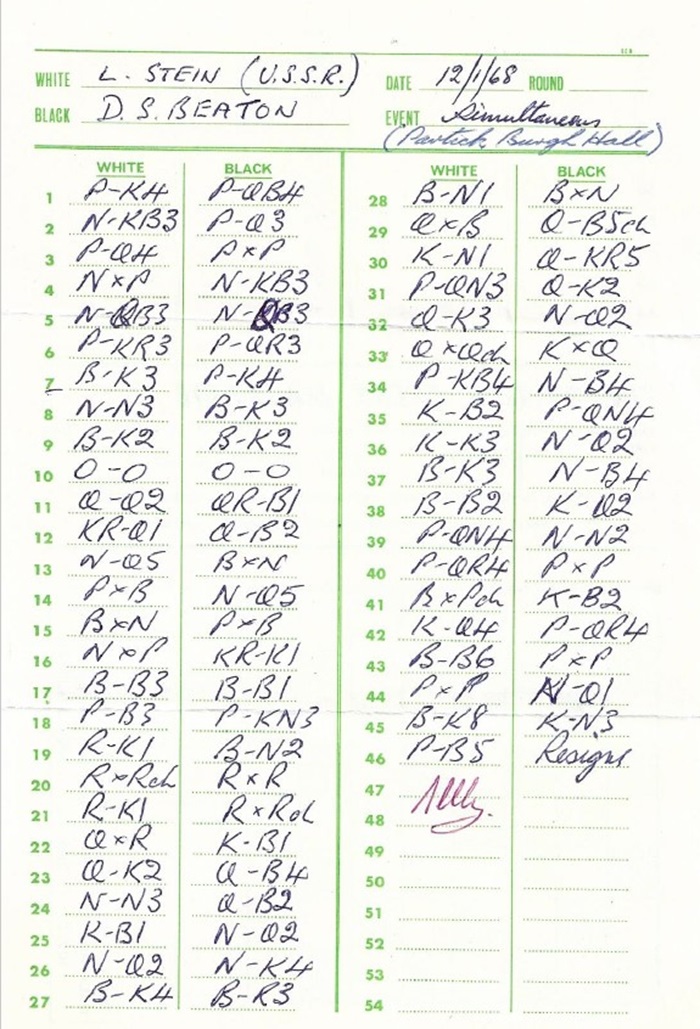 WHITE L. STEIN (U.S.S.R.) DATE 12/1/68 ROUND
BLACK D. S. BEATON EVENT Simultaneous
(Partick Burgh Hall)
WHITE BLACK
1 P-K4 P-QB4
2 N-KB3 P-Q3
3 P-Q4 P×P
4 N×P N-KB3
5 N-QB3 N-QB3
6 P-KR3 P-QR3
7 B-K3 P-K4
8 N-N3 B-K3
9 B-K2 B-K2
10 O-O O-O
11 Q-Q2 QR-B1
12 KR-Q1 Q-B2
13 N-Q5 B×N
14 P×B N-Q5
15 B×N P×B
16 N×P KR-K1
17 B-B3 B-B1
18 P-B3 P-KN3
19 R-K1 B-N2
20 R×Rch R×R
21 R-K1 R×Rch
22 Q×R K-B1
23 Q-K2 Q-B4
24 N-N3 Q-B2
25 K-B1 N-Q2
26 N-Q2 N-K4
27 B-K4 B-R3
WHITE BLACK
28 B-N1 B×N
29 Q×B Q-B5ch
30 K-N1 Q-KR5
31 P-QN3 Q-K2
32 Q-K3 N-Q2
33 Q×Qch K×Q
34 P-KB4 N-B4
35 K-B2 P-QN4
36 K-K3 N-Q2
37 B-K3 N-B4
38 B-B2 K-Q2
39 P-QN4 N-N2
40 P-QR4 P×P
41 B×Pch K-B2
42 K-Q4 P-QR4
43 B-B6 P×P
44 P×P N-Q1
45 B-K8 K-N3
46 P-B5 Resigns
47
48
49
50
51
52
53
54